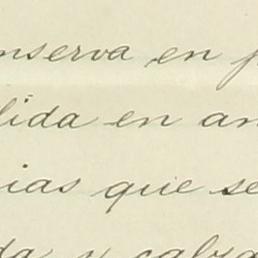 nserva en p
lida en an
ias que se
da y calza